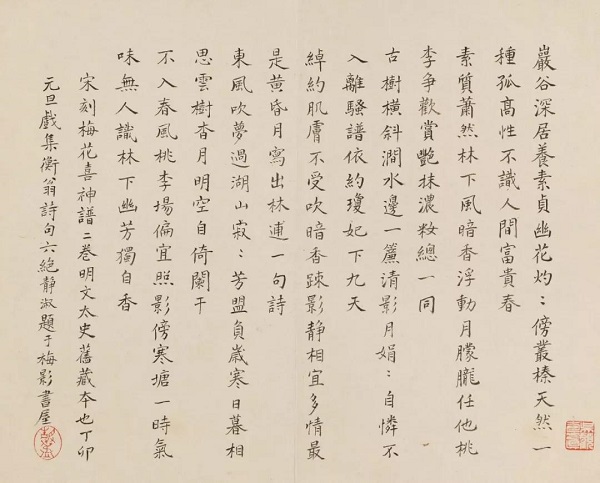 巖谷深居養素貞幽花灼〻傍叢榛天然一
種孤高性不識人間富貴春
素質蕭然林下風暗香浮動月朦朧任他桃
李爭歡賞艷抹濃粧總一同
古樹橫斜澗水邊一簾清影月娟〻自憐不
入離騷譜依約瓊妃下九天
綽約肌膚不受吹暗香踈影靜相宜多情最
是黃昏月寫出林逋一句詩
東風吹夢過湖山寂〻芳盟負歲寒日暮相
思雲樹杳月明空自倚闌干
不入春風桃李場偏宜照影傍寒塘一時氣
味無人識林下幽芳獨自香
宋刻梅花喜神譜二卷明文太史舊藏本也丁卯
元旦戲集衡翁詩句六絕靜淑題于梅影書屋